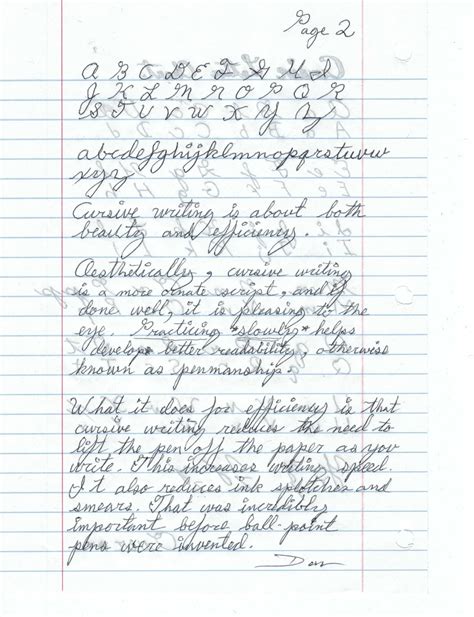 Page 2
A B C D E F G H I
J K L M N O P Q R
S T U V W X Y Z
abcdefghijklmnopqrstuvw
xyz
Cursive writing is about both
beauty and efficiency.
Aesthetically, cursive writing
is a more ornate script, and if
done well, it is pleasing to the
eye. Practicing *slowly* helps
develop better readability, otherwise
known as penmanship.
What it does for efficiency is that
cursive writing reduces the need to
lift the pen off the paper as you
write. This increases writing speed.
It also reduces ink splotches and
smears. That was incredibly
important before ball-point
pens were invented.